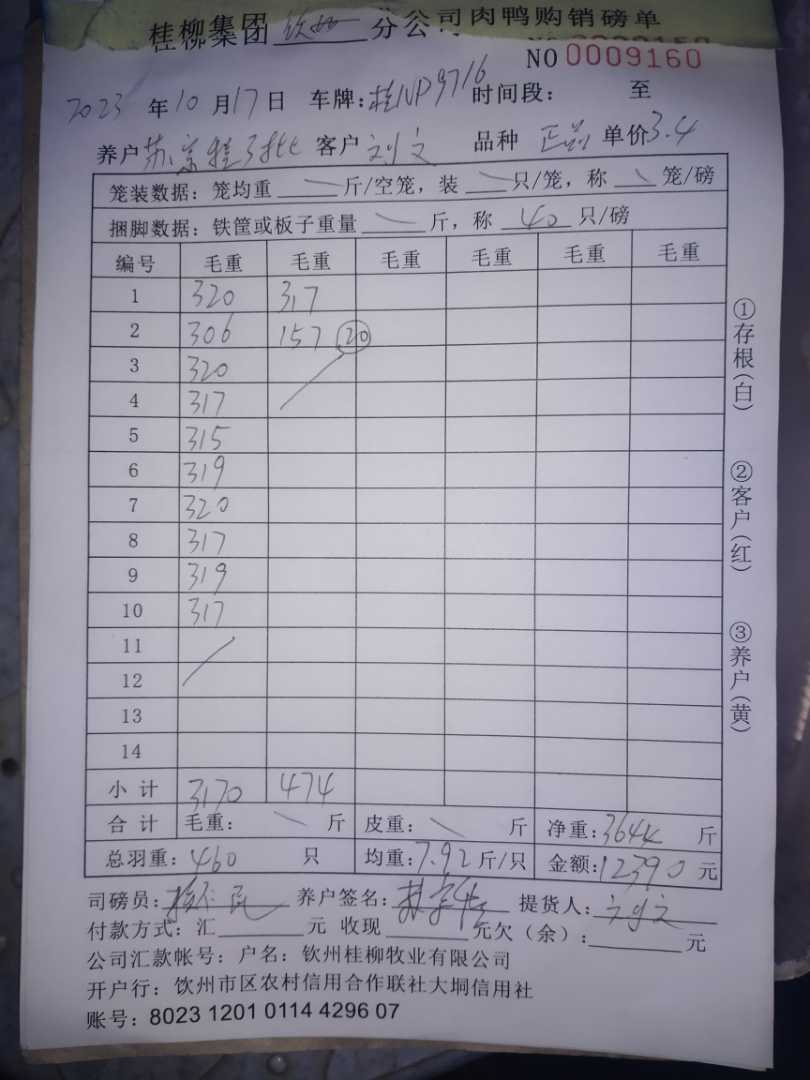 桂柳集团 钦州 分公司肉鸭购销磅单
NO 0009160
2023 年 10 月 17 日 车牌：桂NP9716 时间段： 至
养户 苏宗桂 3批 客户 刘文 品种 正品 单价 3.4
笼装数据：笼均重 ＼ 斤/空笼，装 ＼ 只/笼，称 ＼ 笼/磅
捆脚数据：铁筐或板子重量 ＼ 斤，称 40 只/磅
编号 毛重 毛重 毛重 毛重 毛重 毛重
1 320 317
2 306 157 20
3 320
4 317
5 315
6 319
7 320
8 317
9 319
10 317
11
12
13
14
小计 3170 474
合计 毛重： ＼ 斤 皮重： ＼ 斤 净重：3644 斤
总羽重：460 只 均重：7.92 斤/只 金额：12390 元
司磅员： 养户签名： 提货人：刘文
付款方式：汇 元 收现 元欠（余）： 元
公司汇款帐号：户名：钦州桂柳牧业有限公司
开户行：钦州市区农村信用合作联社大垌信用社
账号：8023 1201 0114 4296 07
①存根(白)
②客户(红)
③养户(黄)